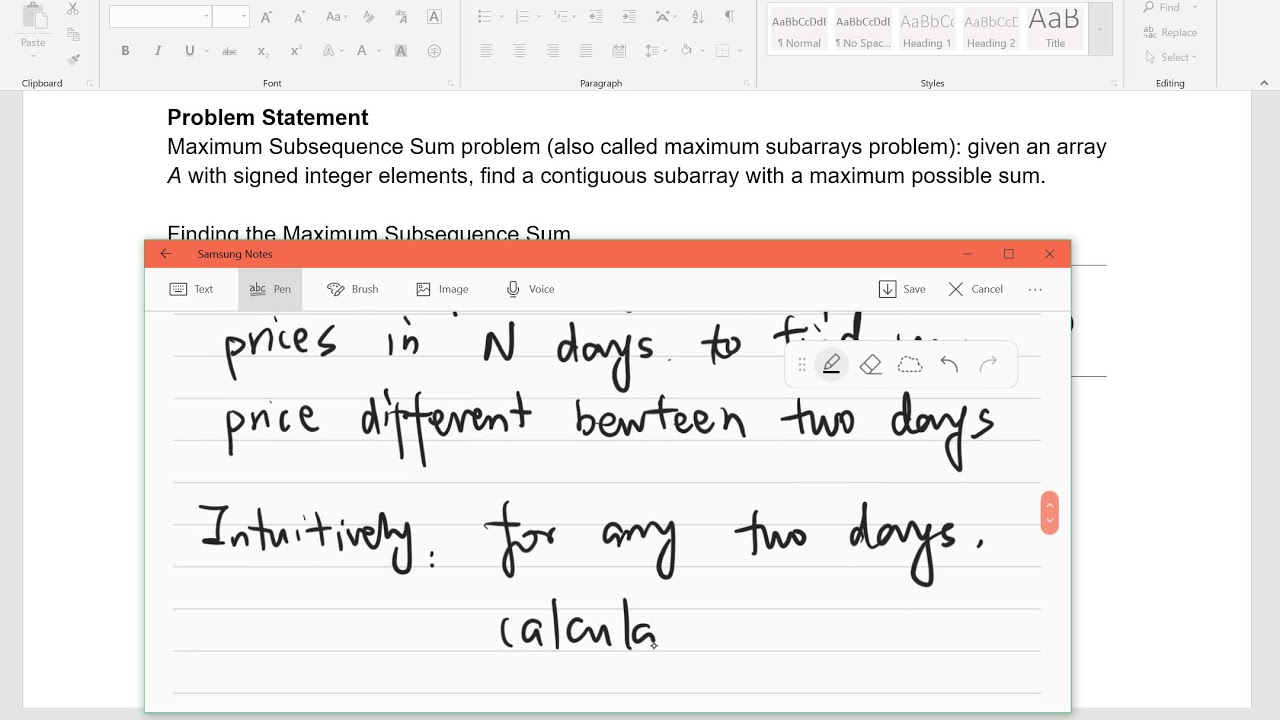 Paste
Clipboard
Aa
B I U abc x₂ x² A A A
Font
Paragraph
AaBbCcDdI AaBbCcDdI AaBbCc AaBbCcD AaB
¶ Normal ¶ No Spac... Heading 1 Heading 2 Title
Styles
Find
Replace
Select
Editing
Problem Statement
Maximum Subsequence Sum problem (also called maximum subarrays problem): given an array
A with signed integer elements, find a contiguous subarray with a maximum possible sum.
Finding the Maximum Subsequence Sum
Samsung Notes
Text abc Pen Brush Image Voice Save Cancel ...
prices in N days. to find
price different bewteen two days
Intuitively: for any two days.
calcula